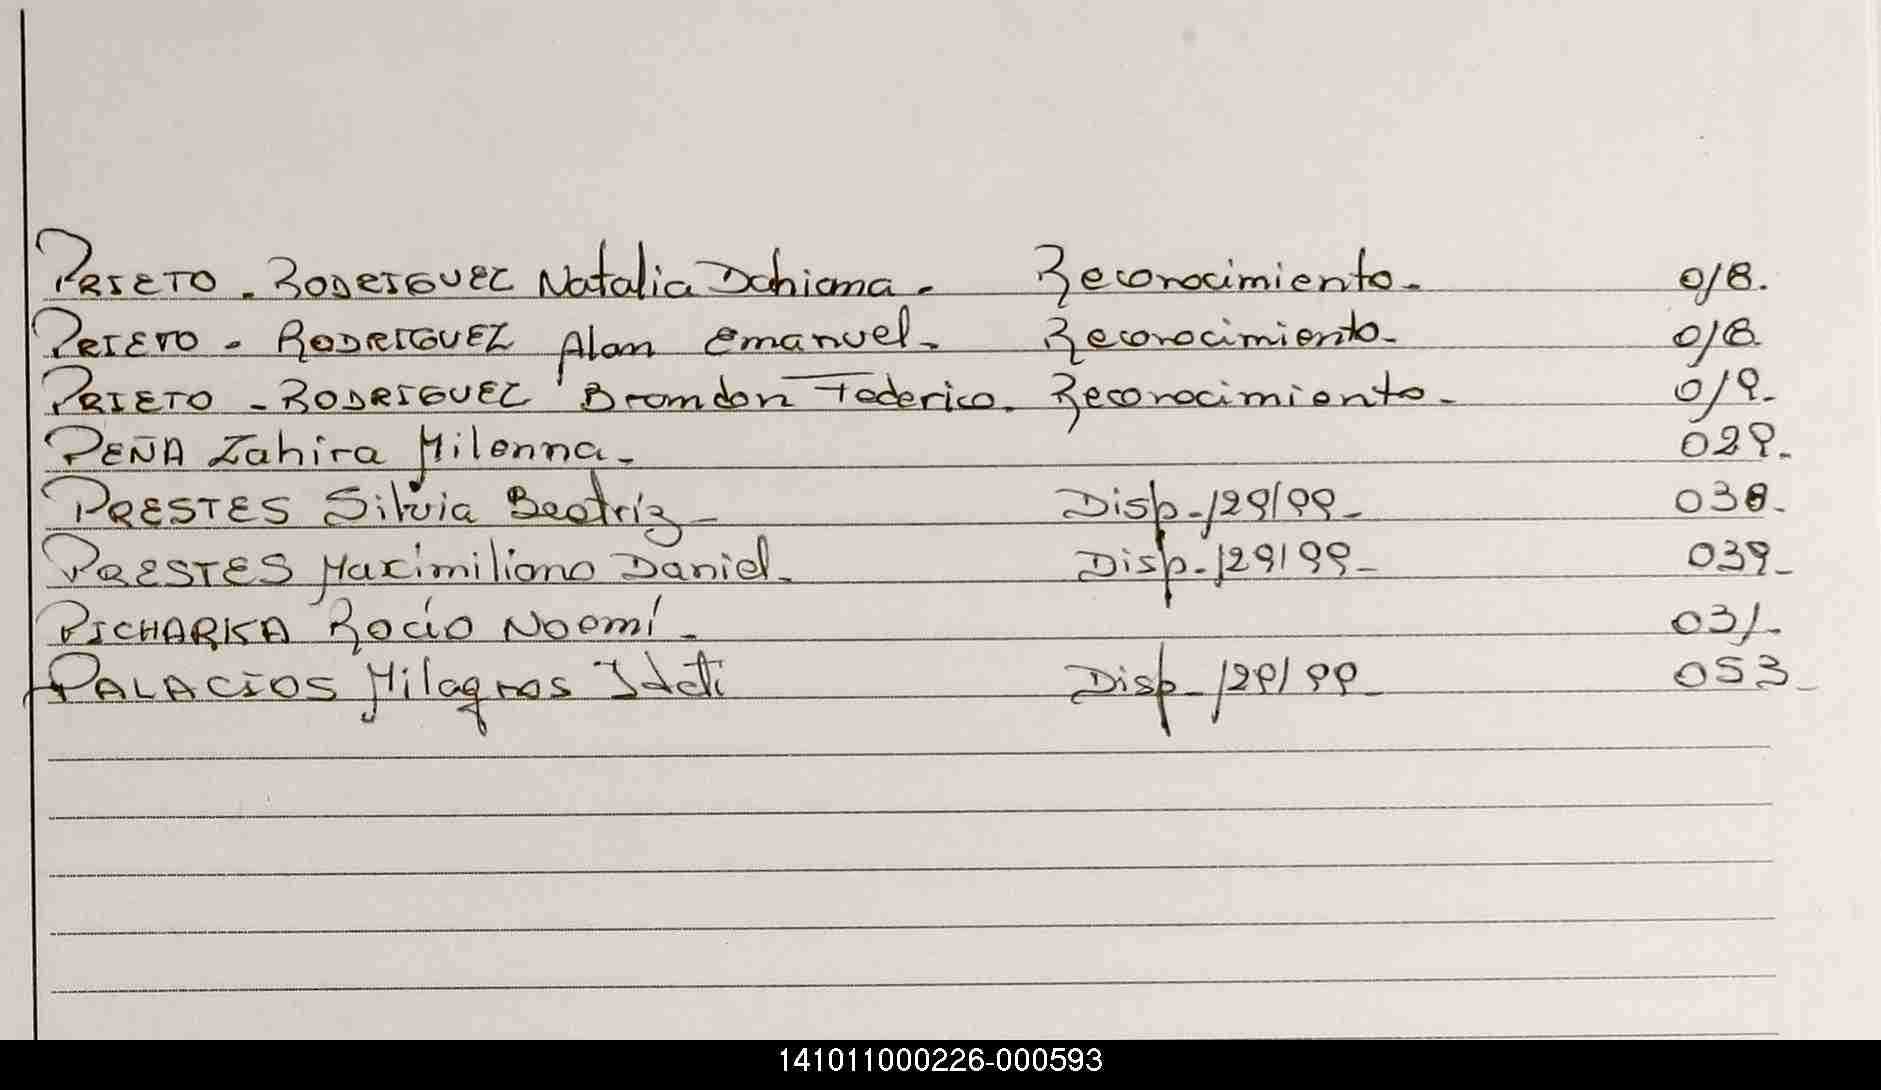 PRIETO - RODRIGUEZ Natalia Dahiana. Reconocimiento. 018.
PRIETO - RODRIGUEZ Alan Emanuel. Reconocimiento. 018
PRIETO - RODRIGUEZ Brandon Federico. Reconocimiento. 019.
PEÑA Zahira Milenna. 029.
PRESTES Silvia Beatriz Disp. 129/99 038.
PRESTES Maximiliano Daniel. Disp. 129/99 039
PICHARKA Rocío Noemí. 031.
PALACIOS Milagros Disp. 129/99 053
141011000226-000593